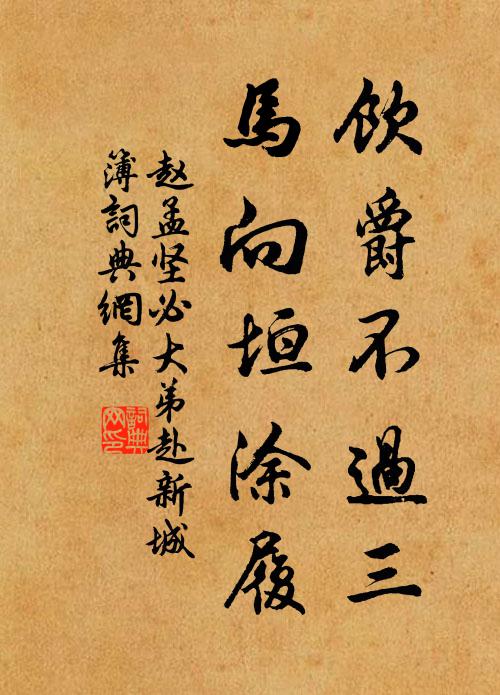 飲爵不過三
馬向垣涂履
赵孟坚必大弟赴新城
簿詞典網集
詞典网印